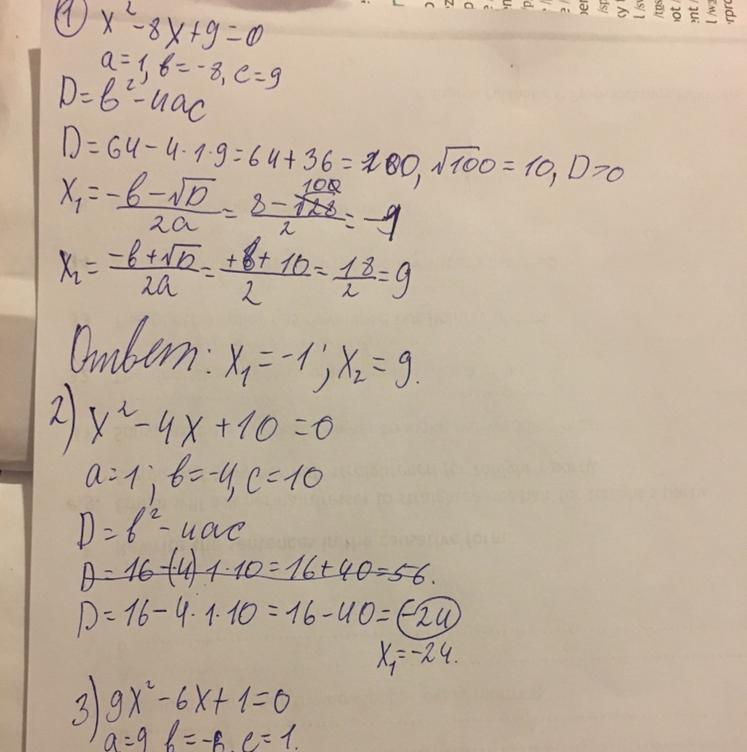 1) x²-8x+9=0
a=1, b=-8, c=9
D=b²-4ac
D=64-4·1·9=64+36=100, √100=10, D>0
x₁=(-b-√D)/2a=(8-100)/2=-9
x₂=(-b+√D)/2a=(+8+10)/2=18/2=9
Ответ: x₁=-1; x₂=9.
2) x²-4x+10=0
a=1; b=-4, c=10
D=b²-4ac
D=16-(4)·1·10=16+40=56.
D=16-4·1·10=16-40=-24
x₁=-24.
3) 9x²-6x+1=0
a=9, b=-6, c=1.